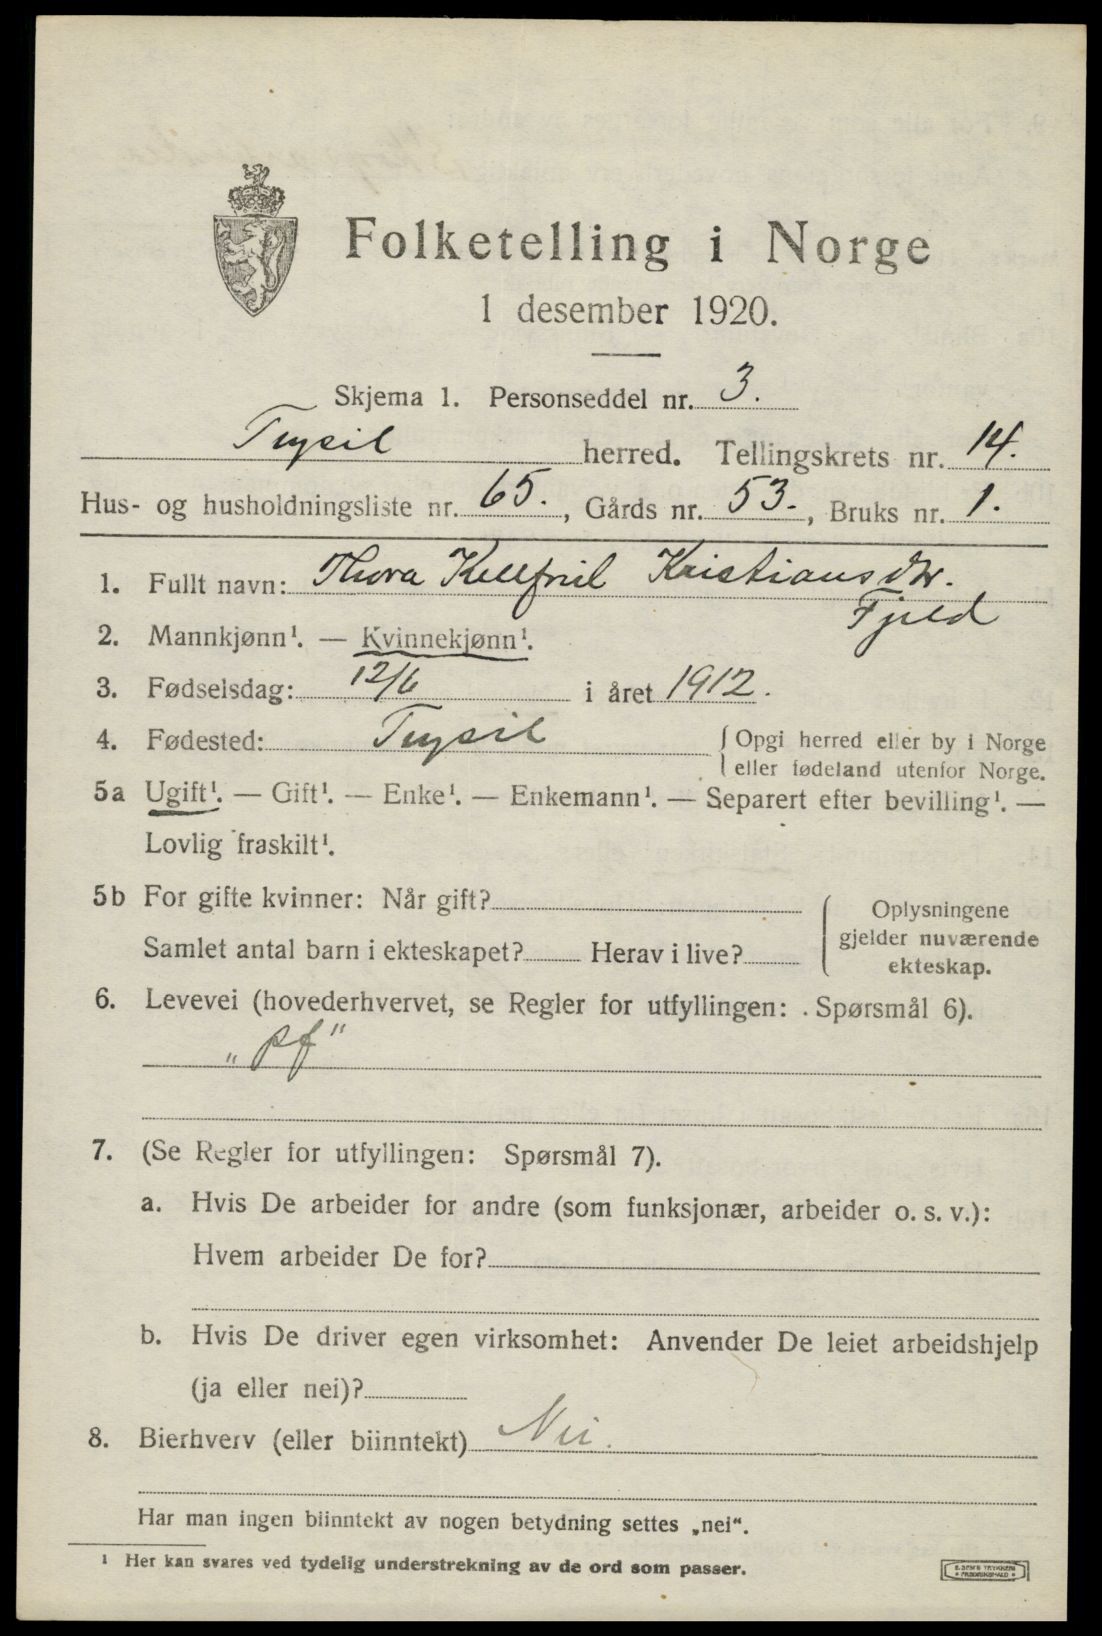 Folketelling i Norge
1 desember 1920.
Skjema 1. Personseddel nr. 3.
Trysil herred. Tellingskrets nr. 14.
Hus- og husholdningsliste nr. 65., Gårds nr. 53., Bruks nr. 1.
1. Fullt navn: Thora Kristiansdtr.
Fjeld
2. Mannkjønn¹. — Kvinnekjønn¹.
3. Fødselsdag: 12/6 i året 1912.
4. Fødested: Trysil { Opgi herred eller by i Norge
eller fødeland utenfor Norge.
5a Ugift¹. — Gift¹. — Enke¹. — Enkemann¹. — Separert efter bevilling¹. —
Lovlig fraskilt¹.
5b For gifte kvinner: Når gift?
Samlet antal barn i ekteskapet? Herav i live?
Oplysningene
gjelder nuværende
ekteskap.
6. Levevei (hovederhvervet, se Regler for utfyllingen: Spørsmål 6).
„pf"
7. (Se Regler for utfyllingen: Spørsmål 7).
a. Hvis De arbeider for andre (som funksjonær, arbeider o. s. v.):
Hvem arbeider De for?
b. Hvis De driver egen virksomhet: Anvender De leiet arbeidshjelp
(ja eller nei)?
8. Bierhverv (eller biinntekt) Nei.
Har man ingen biinntekt av nogen betydning settes „nei“.
¹ Her kan svares ved tydelig understrekning av de ord som passer.